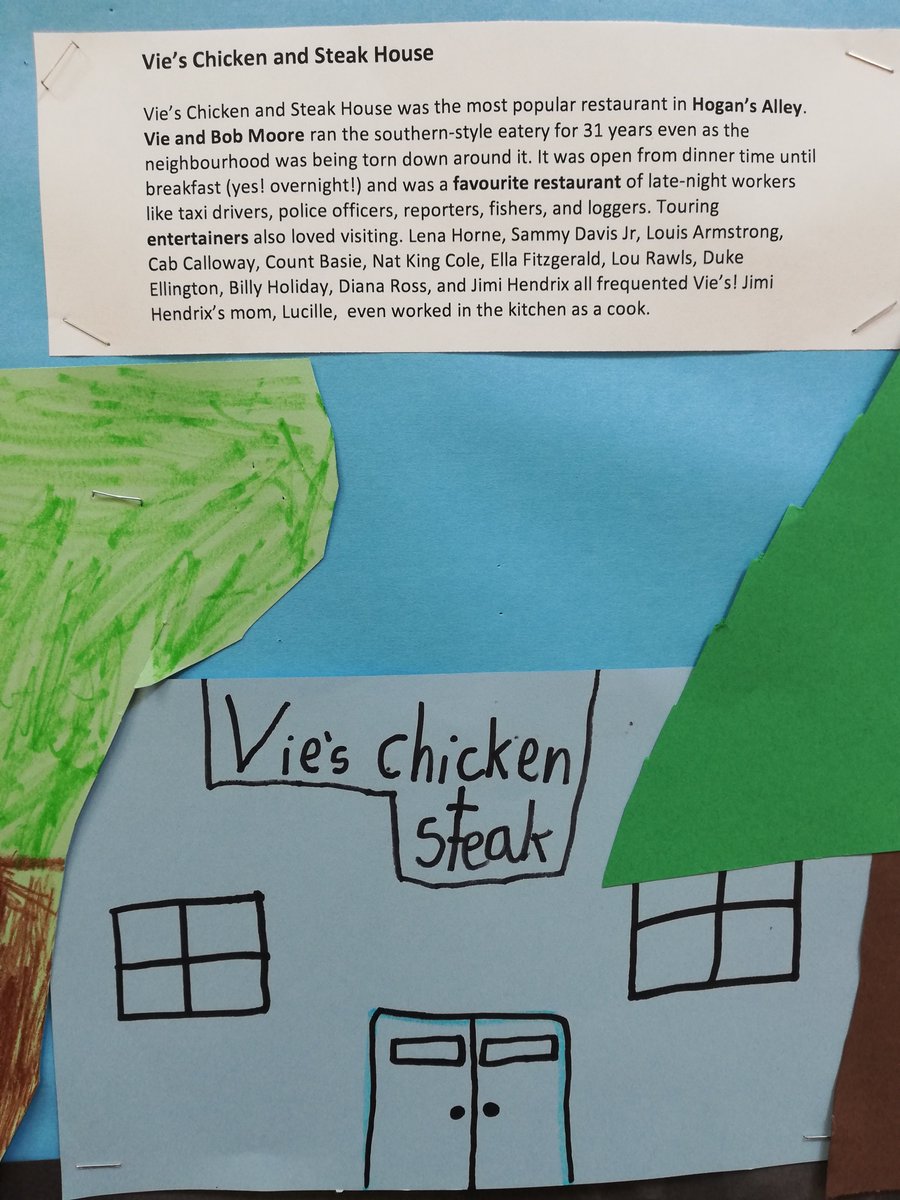 Vie's Chicken and Steak House
Vie's Chicken and Steak House was the most popular restaurant in Hogan's Alley.
Vie and Bob Moore ran the southern-style eatery for 31 years even as the
neighbourhood was being torn down around it. It was open from dinner time until
breakfast (yes! overnight!) and was a favourite restaurant of late-night workers
like taxi drivers, police officers, reporters, fishers, and loggers. Touring
entertainers also loved visiting. Lena Horne, Sammy Davis Jr, Louis Armstrong,
Cab Calloway, Count Basie, Nat King Cole, Ella Fitzgerald, Lou Rawls, Duke
Ellington, Billy Holiday, Diana Ross, and Jimi Hendrix all frequented Vie's! Jimi
Hendrix's mom, Lucille, even worked in the kitchen as a cook.
Vie's chicken
+
steak